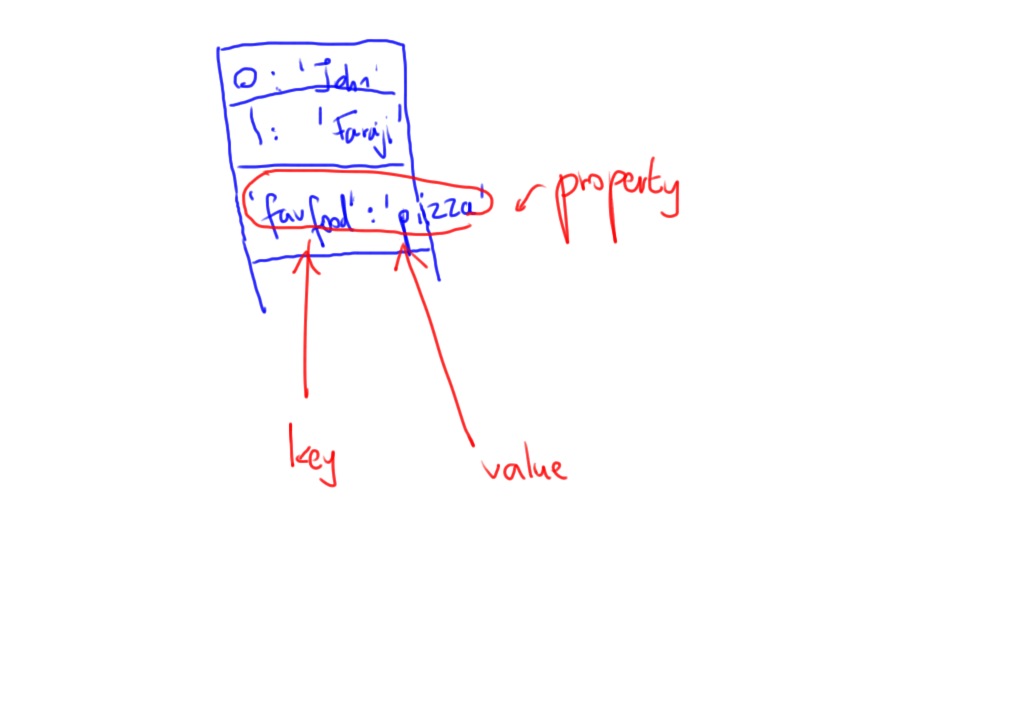 0: 'John'
1: 'Faraji'
'favfood': 'pizza'
property
key
value